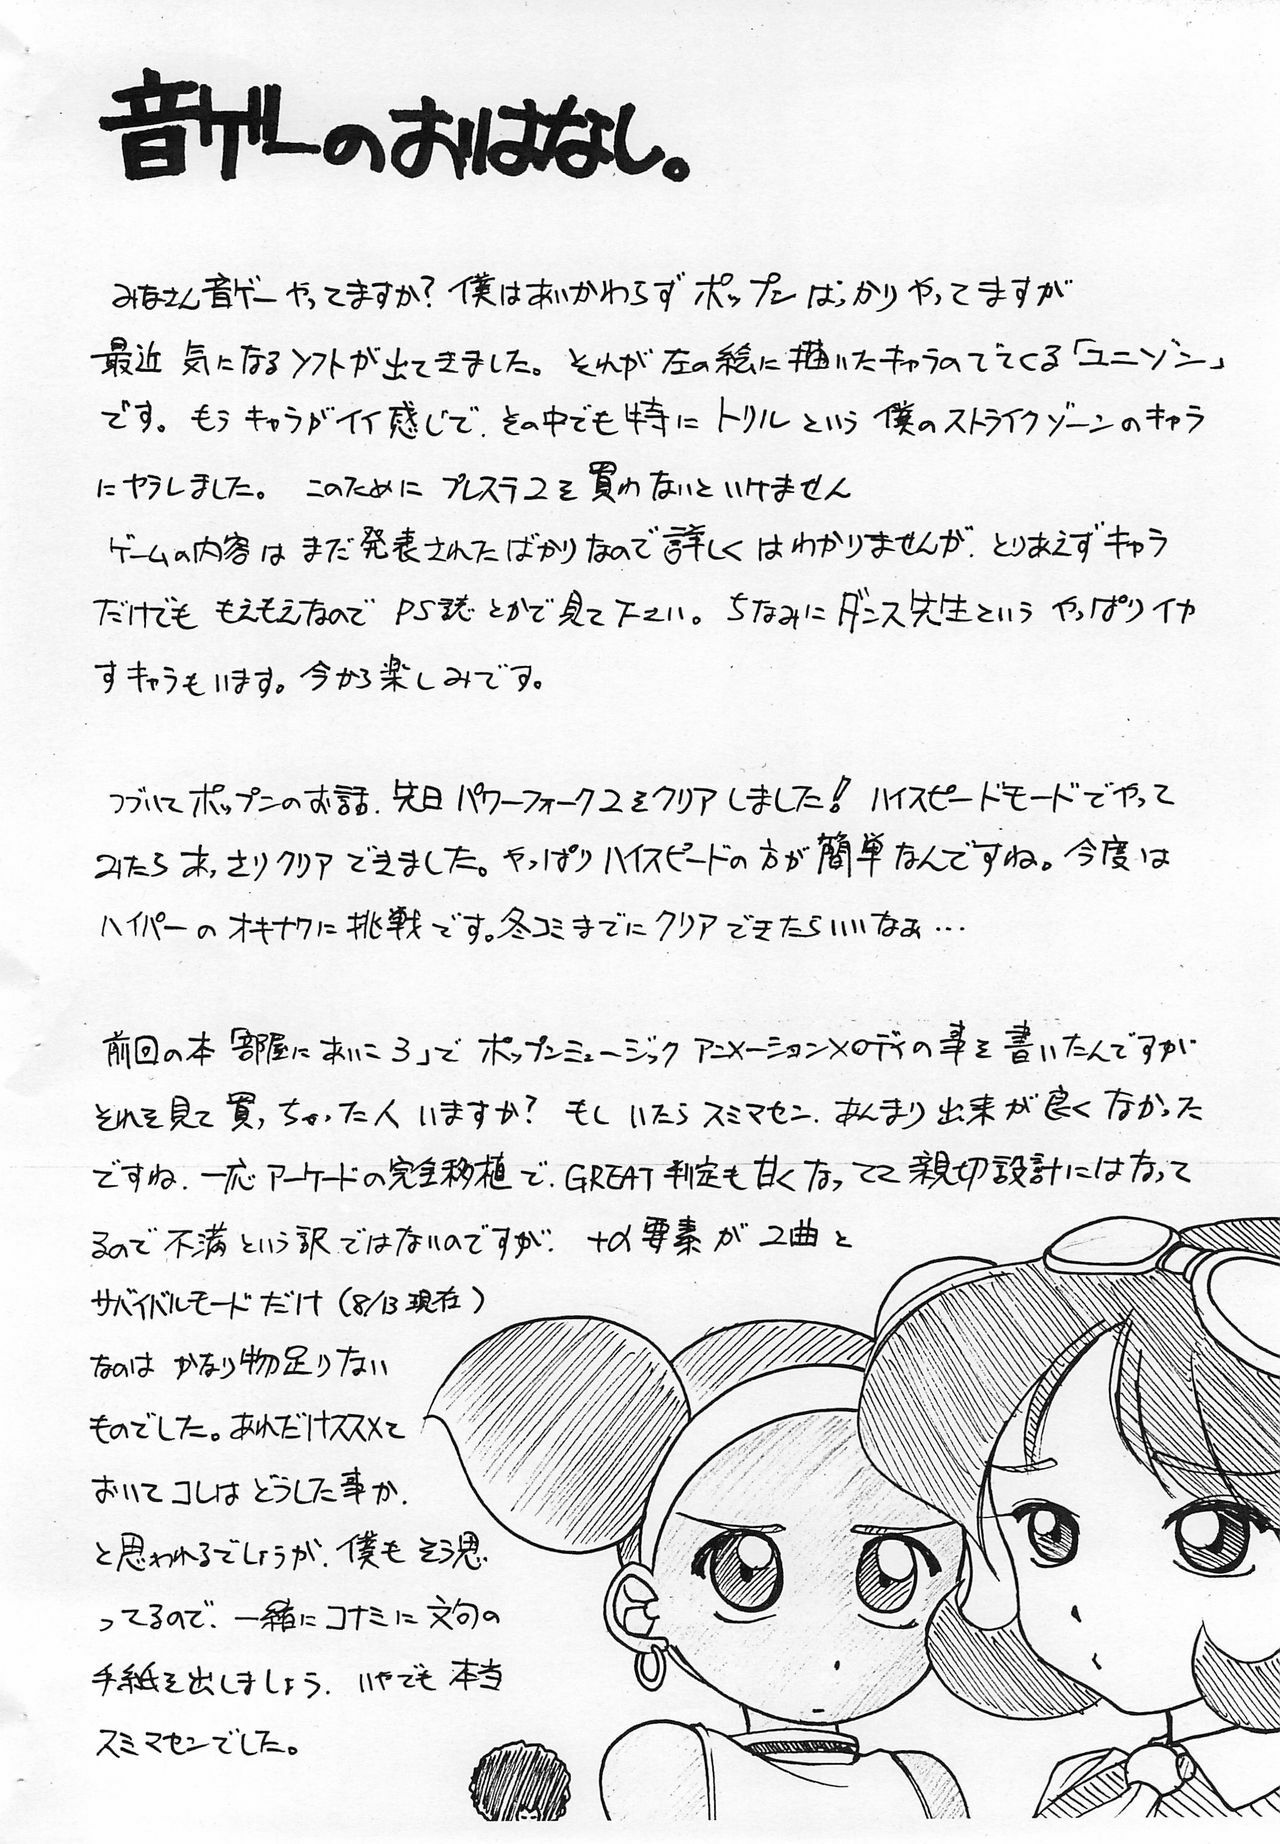 音ゲーのおはなし。
みなさん音ゲーやってますか?僕はあいかわらずポップンばっかりやってますが
最近気になるソフトが出てきました。それが左の絵に描いたキャラのでてくる「ユニゾン」
です。もうキャラがイイ感じで、その中でも特にトリルという僕のストライクゾーンのキャラ
にヤラレました。このためにプレステ2を買わないといけません
ゲームの内容はまだ発表されたばかりなので詳しくはわかりませんが、とりあえずキャラ
だけでももえもえなのでPS誌とかで見て下さい。ちなみにダンス先生というやっぱりイカ
すキャラもいます。今から楽しみです。
つづいてポップンのお話、先日パワーフォーク2をクリアしました!ハイスピードモードでやって
みたらあっさりクリアできました。やっぱりハイスピードの方が簡単なんですね。今度は
ハイパーのオキナワに挑戦です。冬コミまでにクリアできたらいいなぁ…
前回の本「部屋にあいころ」でポップンミュージックアニメーションメロディの事を書いたんですが
それを見て買っちゃった人いますか?もしいたらスミマセン、あんまり出来が良くなかった
ですね、一応アーケードの完全移植で、GREAT判定も甘くなってて親切設計にはなって
るので不満という訳ではないのですが、+α要素が2曲と
サバイバルモードだけ(8/13現在)
なのはかなり物足りない
ものでした。あれだけススメて
おいてコレはどうした事か、
と思われるでしょうが、僕もそう思
ってるので、一緒にコナミに文句の
手紙を出しましょう、いやでも本当
スミマセンでした。